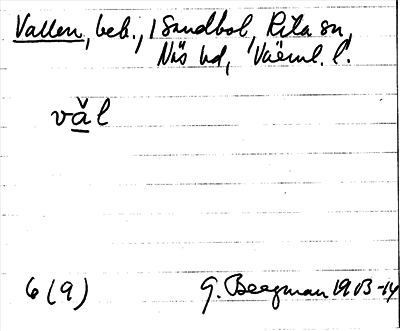 Vallen, beb., 1 Sandbol, Rila sn,
Näs hd, Värml. l.
vǎl
6 (9)
G. Bergman 1913-14